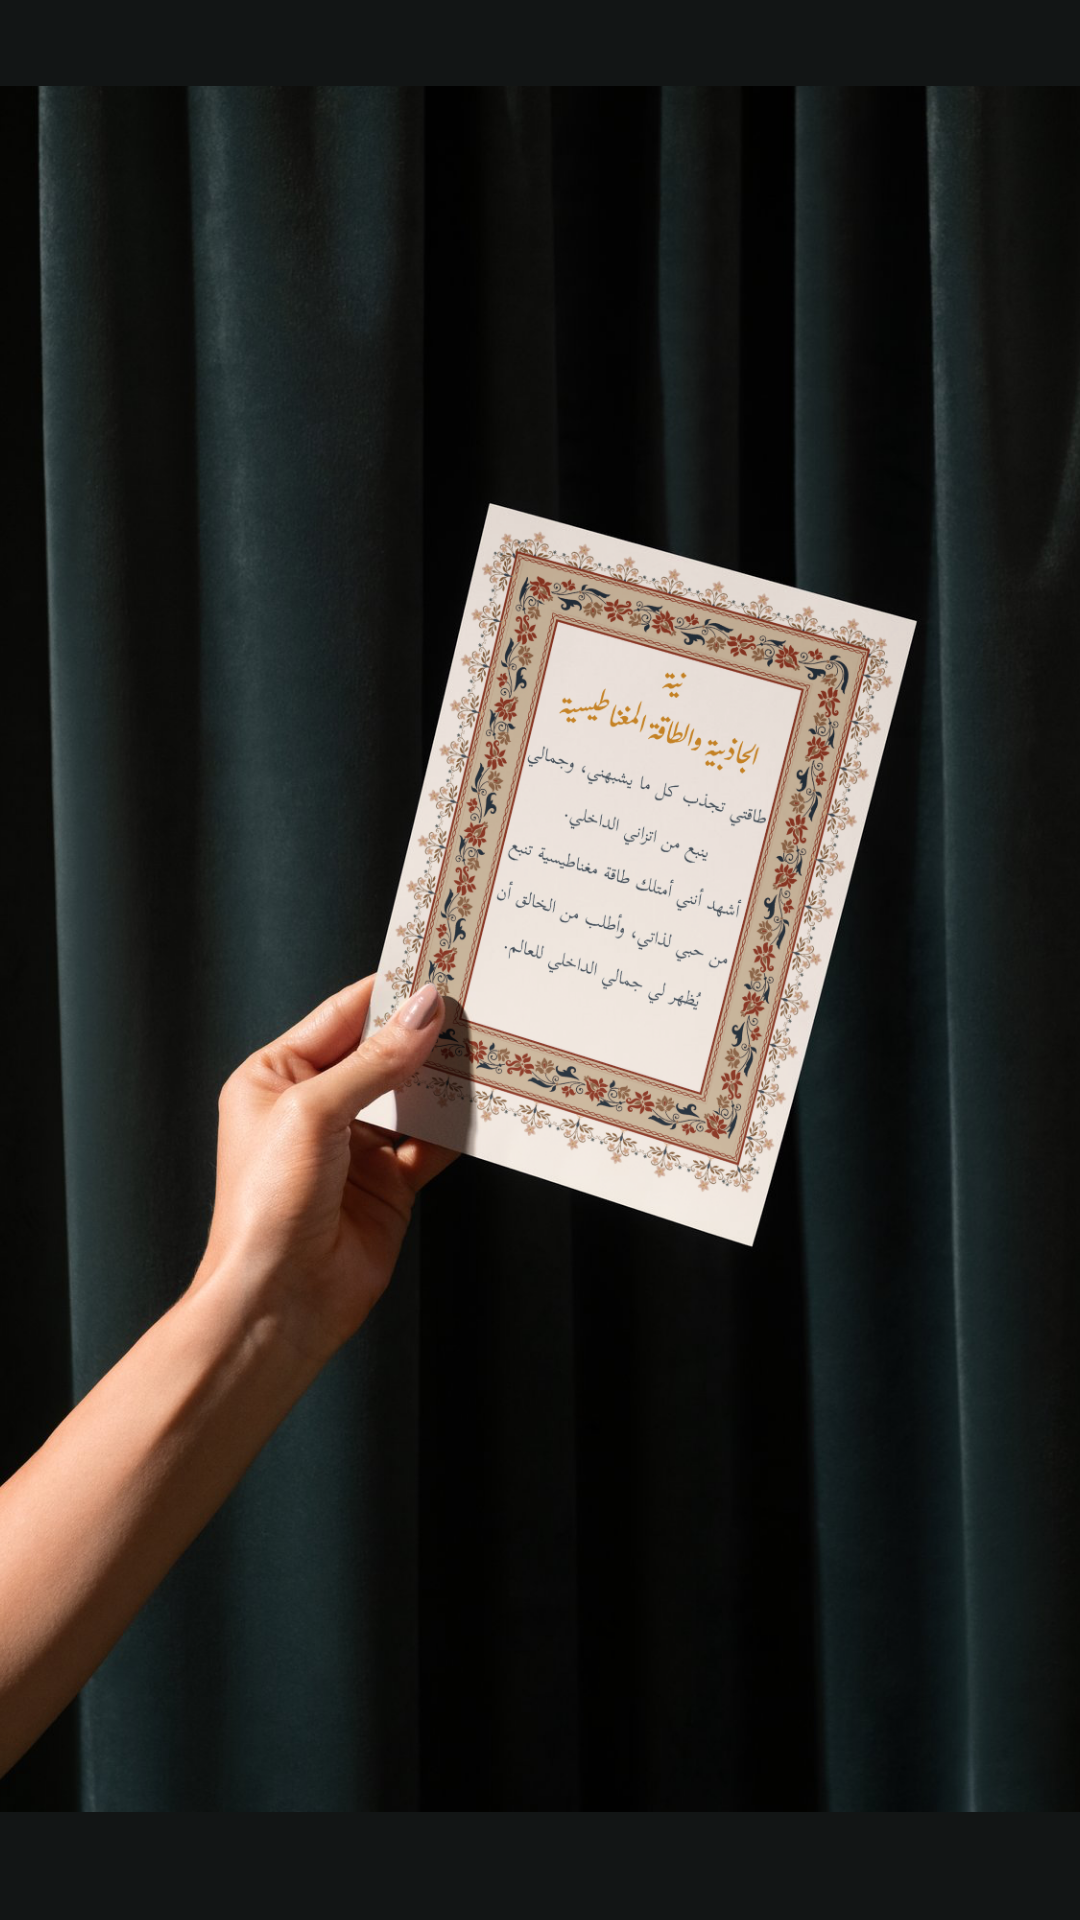 نية
الجاذبية والطاقة المغناطيسية
طاقتي تجذب كل ما يشبهني، وجمالي
ينبع من اتزاني الداخلي.
أشهد أنني أمتلك طاقة مغناطيسية تنبع
من حبي لذاتي، وأطلب من الخالق أن
يُظهر لي جمالي الداخلي للعالم.